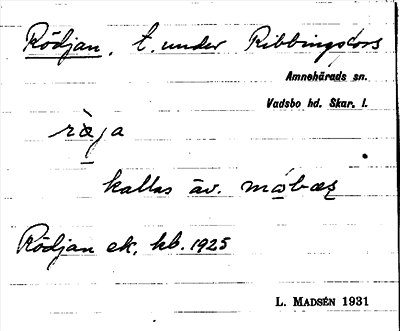 Rödjan, t. under Ribbingsfors
Amnehärads sn.
Vadsbo hd. Skar. l.
kallas äv.
Rödjan ek. kb. 1925
L. MADSÉN 1931